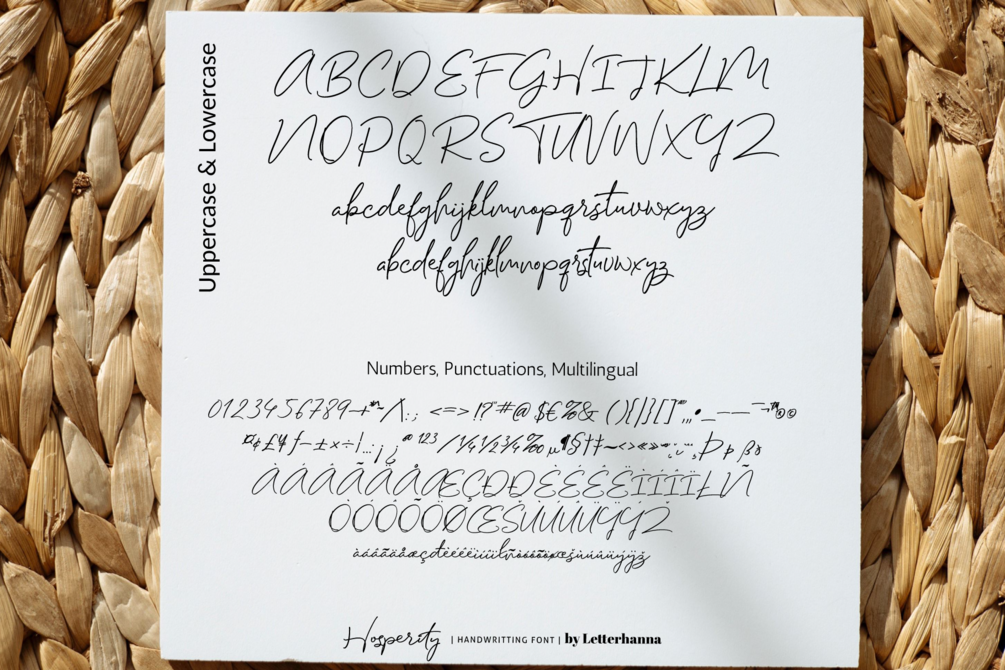 Uppercase & Lowercase
ABCDEFGHIJKLM
NOPQRSTUVWXYZ
abcdefghijklmnopqrstuvwxyz
abcdefghijklmnopqrstuvwxyz
Numbers, Punctuations, Multilingual
0123456789 <=>!?"#@$€%& (){|}[]
¤¢£¥ƒ–±×÷ ¡¿ ªº123/¼½¾‰µ¶§†‡~‹›«» Þþßð
ÀÁÂÃÄÅÆÇÐĐÈÉÊËÌÍÎÏŁÑ
ÒÓÔÕÖØŒŠÙÚÛÜÝŸŽ
àáâãäåæçđèéêëìíîïłñòóôõöøœšùúûüýÿž
Hosperity | HANDWRITTING FONT | by Letterhanna